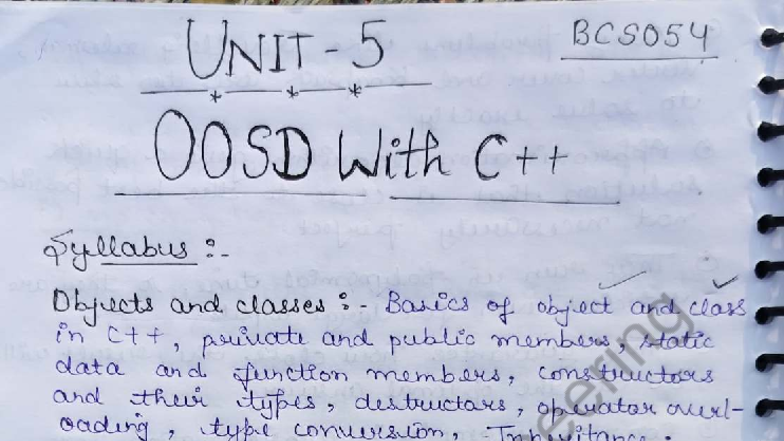 UNIT-5
BCS054
OOSD With C++
Syllabus :-
Objects and classes :- Basics of object and class
in C++, private and public members, static
data and function members, constructors
and their types, destructors, operator overl-
oading, type conversion, Inheritance.
eering